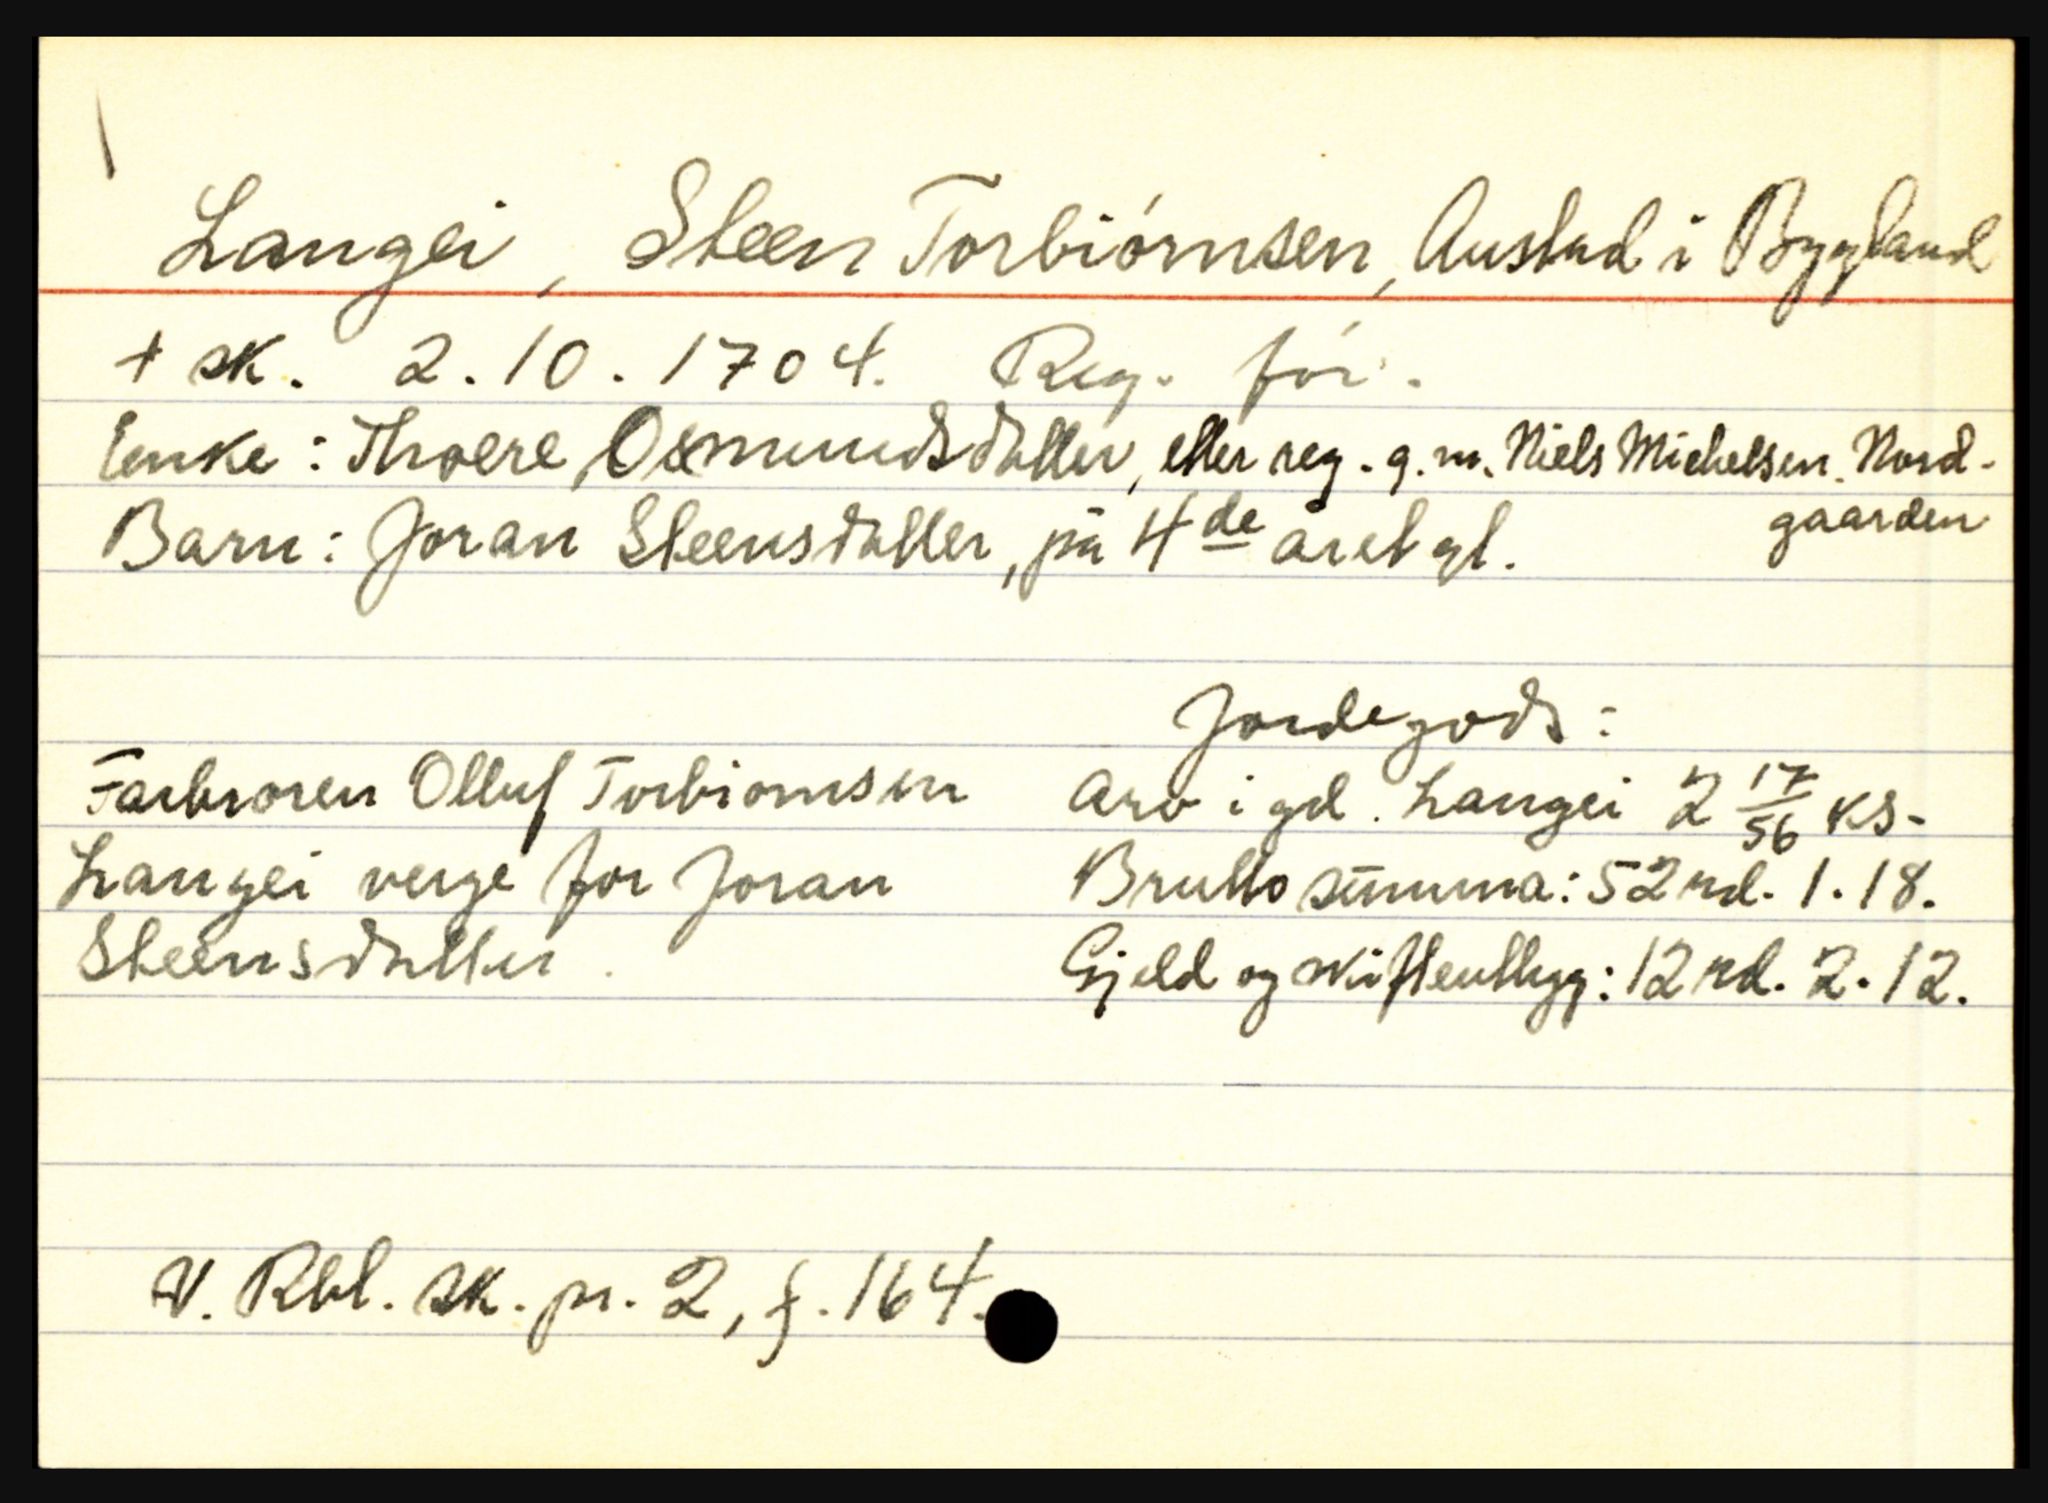 Langei, Steen Torbiórnsen, Austad i Bygland
+ sk. 2.10.1704. Reg. før.
Enke: Thoere Osmundsdatter, etter reg. g.m. Niels Michelsen Nord-
gaarden
Barn: Joran Steensdatter, på 4de året gl.
Farbroren Olluf Torbiornsen
Langei verge for Joran
Steensdatter.
Jordegods:
Arv i gd. Langei 2 17/56 ks.
Brutto summa: 52 rd. 1.18.
Gjeld og skifteutlegg: 12 rd. 2.12.
V. Rbl. sk. pr. 2, f. 164.